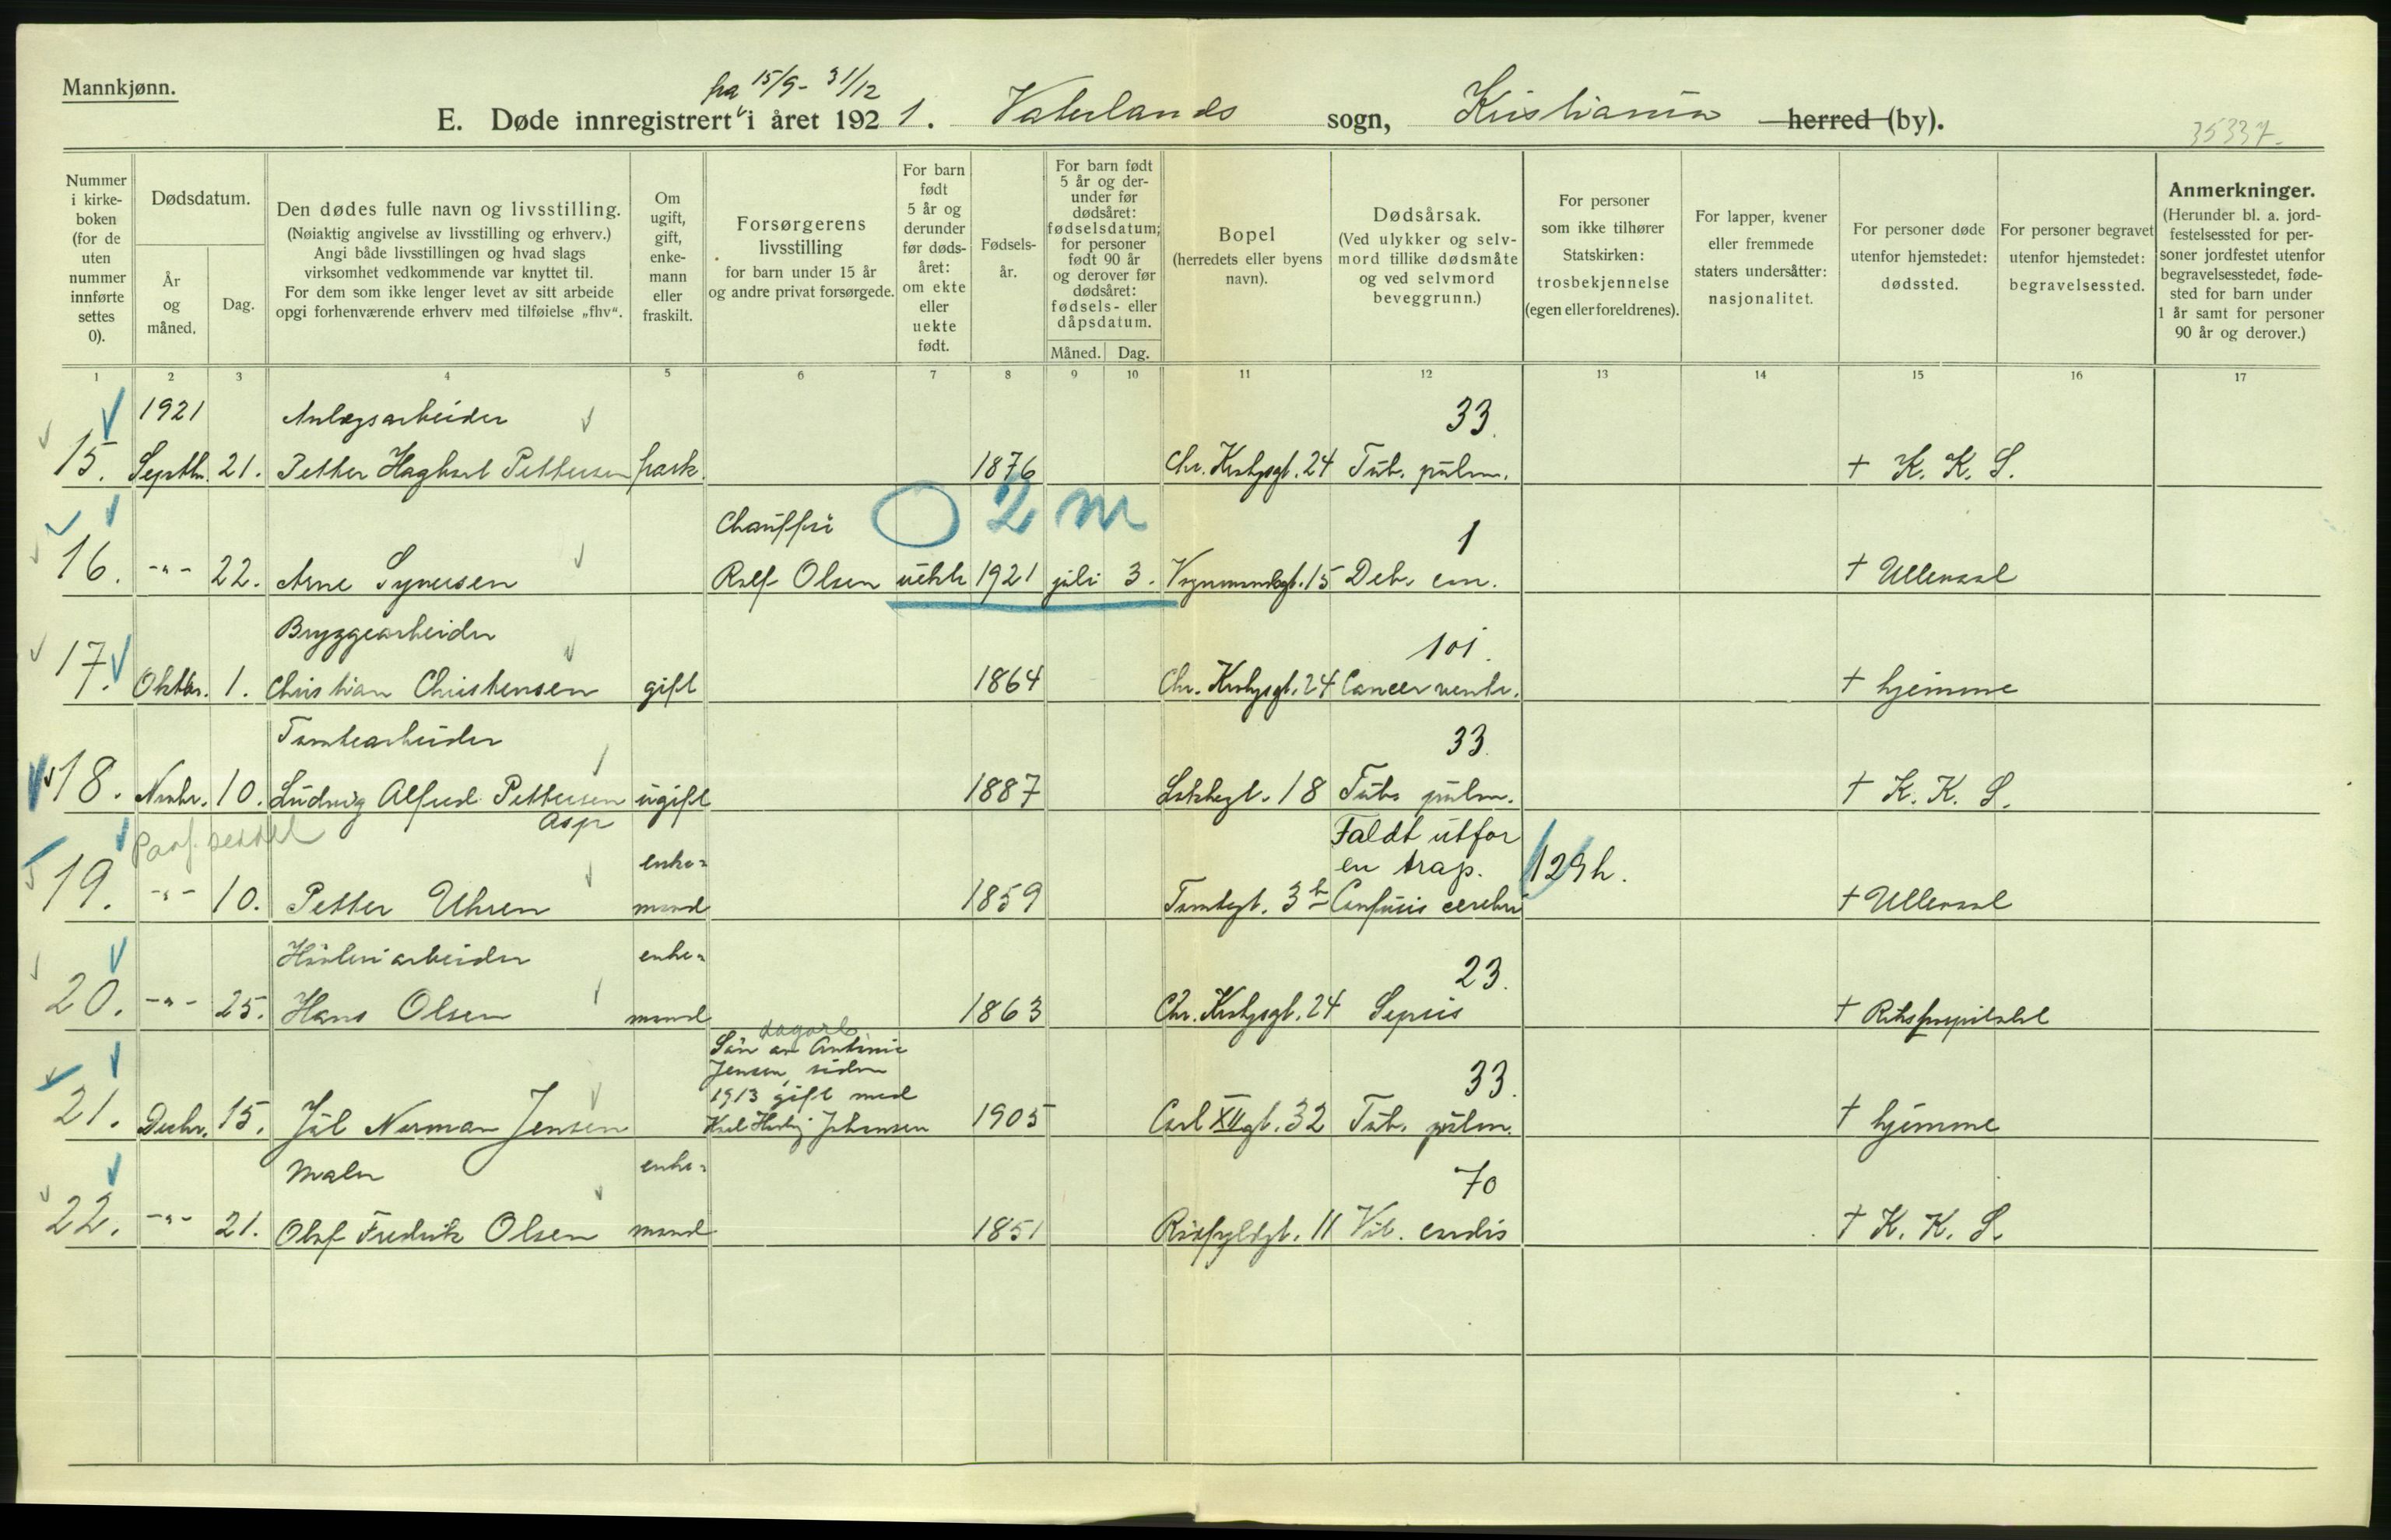 Mannkjønn.
fra 15/9 - 31/12
E. Døde innregistrert i året 1921. Vaterlands sogn, Kristiania herred (by).
35337.
Nummer i kirke-boken (for de uten nummer innførte settes 0).
Dødsdatum.
År og måned.
Dag.
Den dødes fulle navn og livsstilling.
(Nøiaktig angivelse av livsstilling og erhverv.)
Angi både livsstillingen og hvad slags
virksomhet vedkommende var knyttet til.
For dem som ikke lenger levet av sitt arbeide
opgi forhenværende erhverv med tilføielse „fhv“.
Om ugift, gift, enke-mann eller fraskilt.
Forsørgerens
livsstilling
for barn under 15 år
og andre privat forsørgede.
For barn født 5 år og derunder før døds-året: om ekte eller uekte født.
Fødsels-år.
For barn født 5 år og der-under før dødsåret: fødselsdatum; for personer født 90 år og derover før dødsåret: fødsels- eller dåpsdatum.
Måned.
Dag.
Bopel
(herredets eller byens navn).
Dødsårsak.
(Ved ulykker og selv-mord tillike dødsmåte og ved selvmord beveggrunn.)
For personer som ikke tilhører Statskirken: trosbekjennelse (egen eller foreldrenes).
For lapper, kvener eller fremmede staters undersåtter: nasjonalitet.
For personer døde utenfor hjemstedet: dødssted.
For personer begravet utenfor hjemstedet: begravelsessted.
Anmerkninger.
(Herunder bl. a. jord-festelsessted for per-soner jordfestet utenfor begravelsesstedet, føde-sted for barn under 1 år samt for personer 90 år og derover.)
1 2 3 4 5 6 7 8 9 10 11 12 13 14 15 16 17
1921 Anlegsarbeider 33.
15. Septbr. 21. Petter Hagbart Pettersen frask. 1876 Chr. Krohgsgt. 24 Tub. pulm. † K. K. S.
Chauffør O 2 m 1
16. -"- 22. Arne Syversen Rolf Olsen uekte 1921 juli 3. Vognmandsgt. 15 Deb. con. † Ullevaal
Bryggearbeider 101.
17. Oktbr. 1. Christian Christensen gift 1864 Chr. Krohgsgt. 24 Cancer ventr. † hjemme
Tomtearbeider 33.
18. Novbr. 10. Ludvig Alfred Pettersen ugift 1887 Lakkegt. 18 Tub. pulm. † K. K. S.
Asp
enke- Faldt utfor
en trap. 129 h.
19. -"- 10. Petter Uhren mand 1859 Tomtegt. 3 b Confusis cerebri † Ullevaal
Høvleriarbeider enke- 23.
20. -"- 25. Hans Olsen mand 1863 Chr. Krohgsgt. 24 Sepsis † Rikshospitalet
dagarb.
Søn av Antonie
Jensen, siden
1913 gift med 33.
21. Decbr. 15. Jul Norman Jensen Karl Herbj. Johansen 1905 Carl XII gt. 32 Tub. pulm. † hjemme
Maler enke- 70
22. -"- 21. Olaf Fredrik Olsen mand 1851 Rödfyldgt. 11 Vit. cordis † K. K. S.